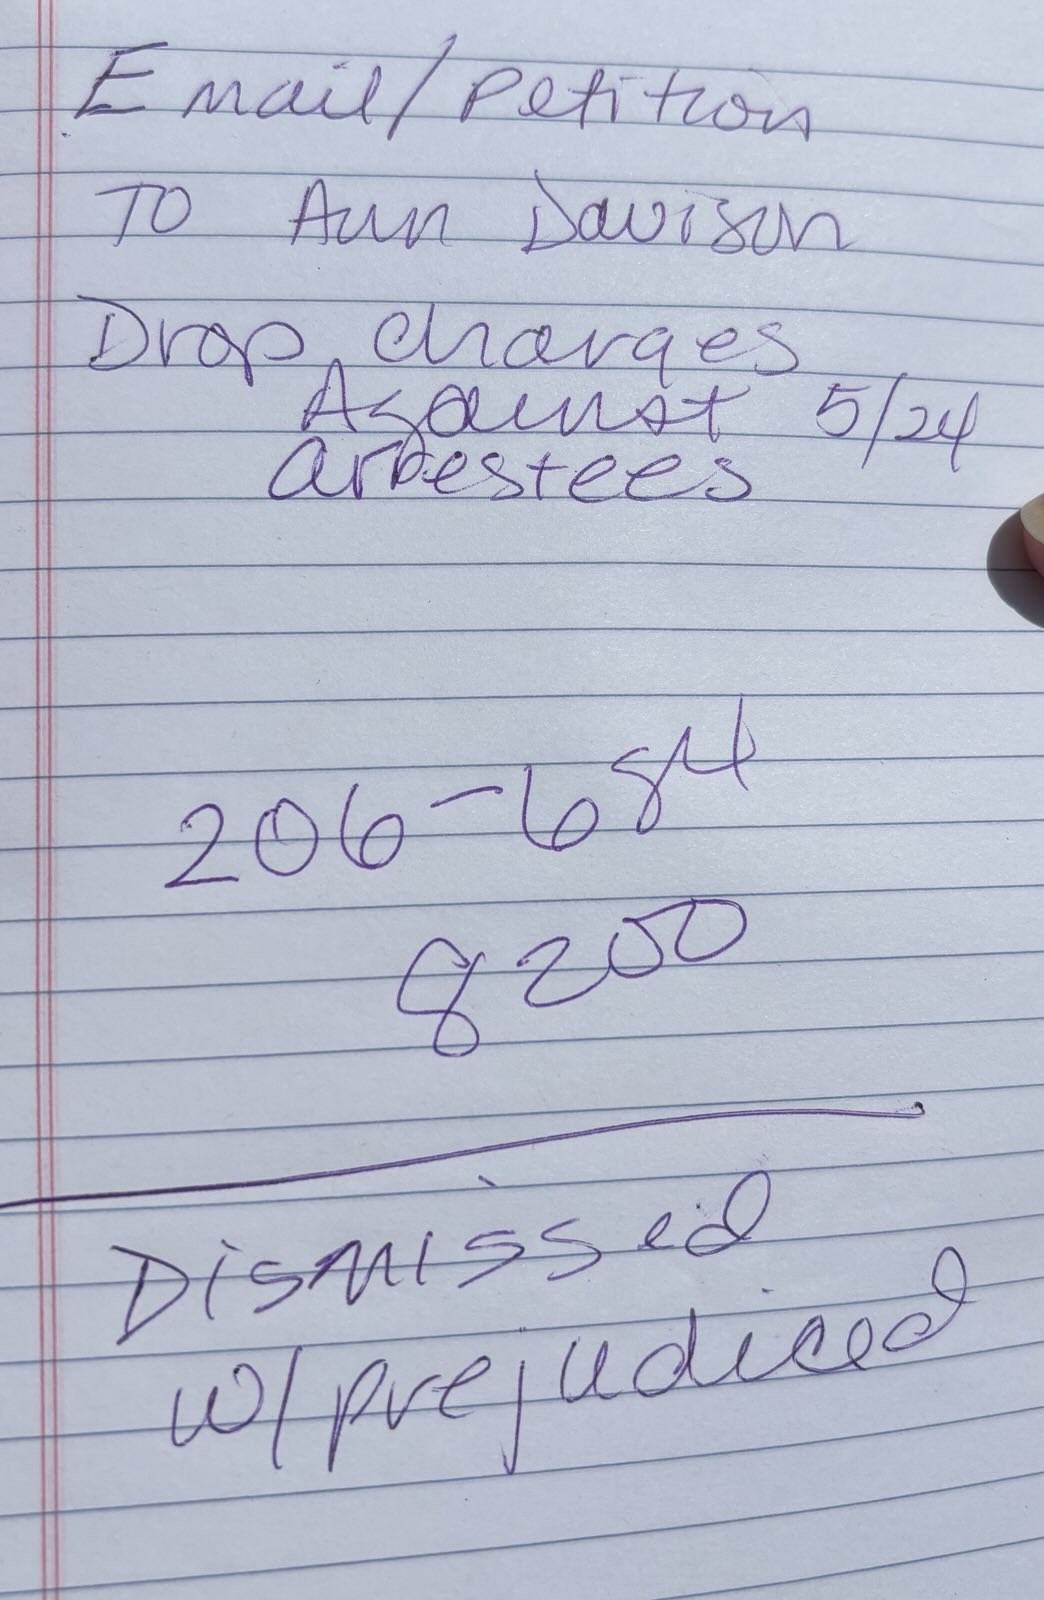 Email/Petition
To Ann Davison
Drop charges
Against 5/24
arrestees
206-684
8200
Dismissed
w/prejudiced